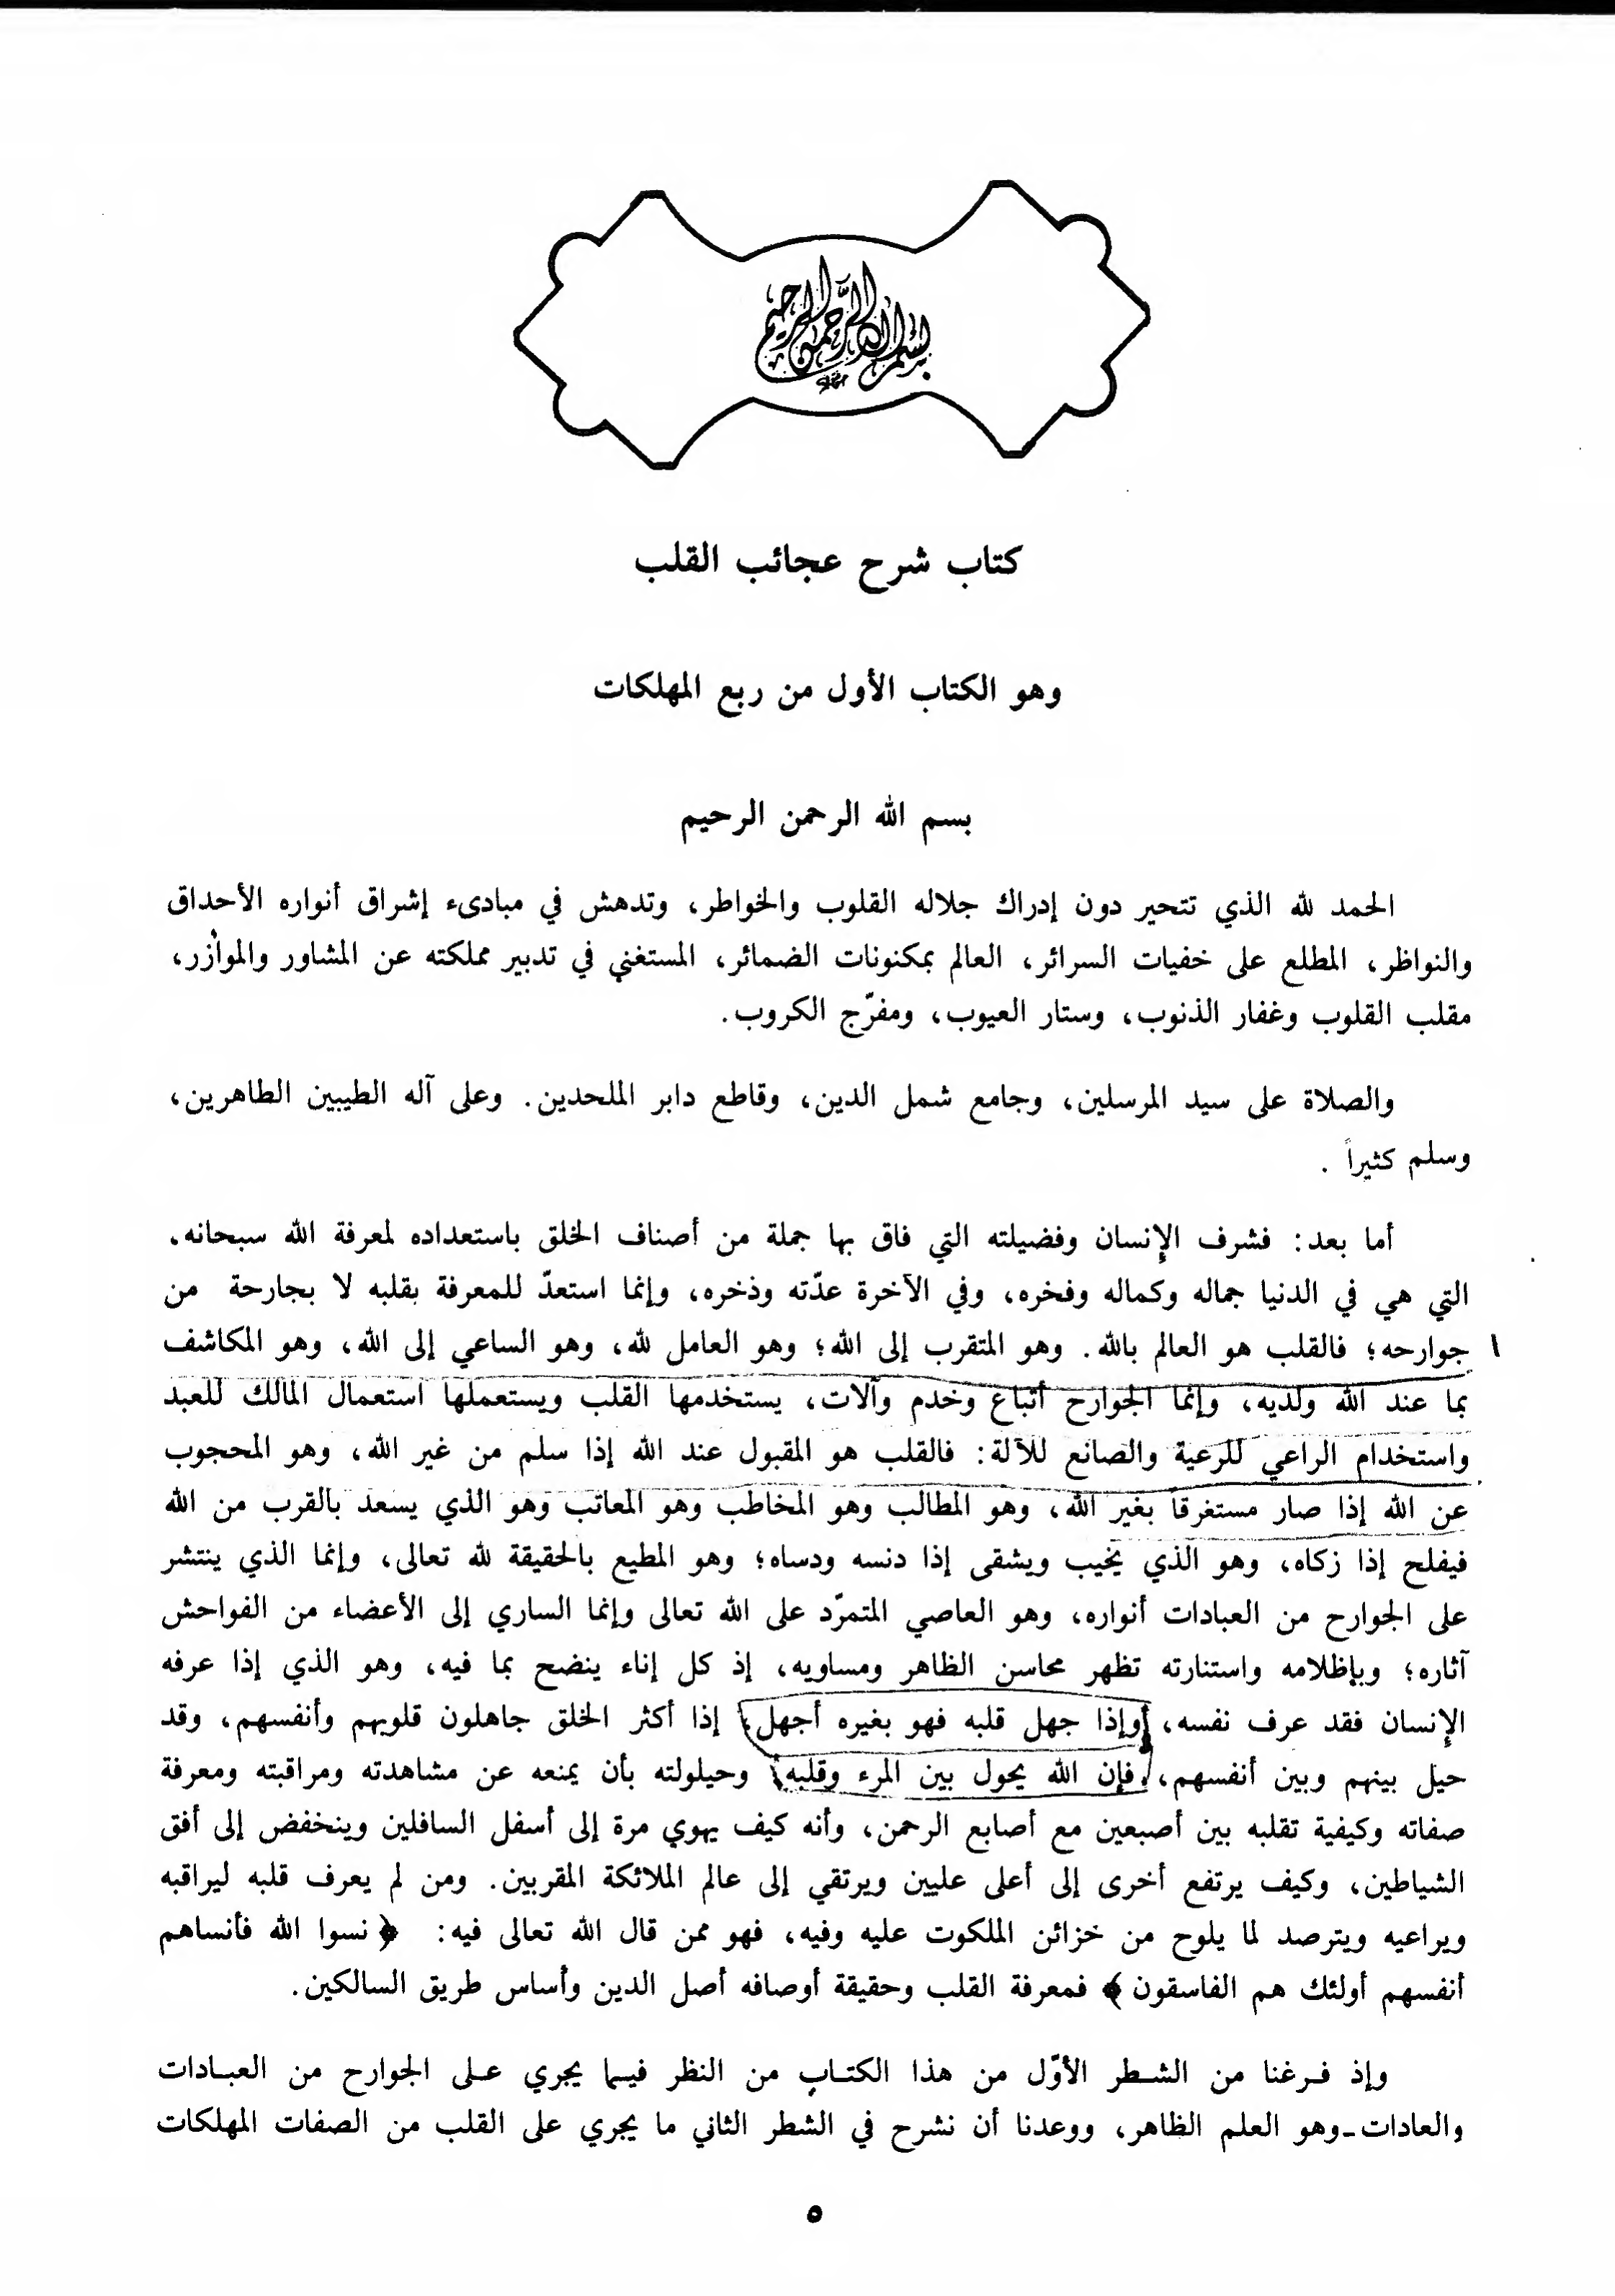 بسم الله الرحمن الرحيم
كتاب شرح عجائب القلب
وهو الكتاب الأول من ربع المهلكات
بسم الله الرحمن الرحيم
الحمد لله الذي تتحير دون إدراك جلاله القلوب والخواطر، وتدهش في مبادىء إشراق أنواره الأحداق
والنواظر، المطلع على خفيات السرائر، العالم بمكنونات الضمائر، المستغني في تدبير مملكته عن المشاور والموازر،
مقلب القلوب وغفار الذنوب، وستار العيوب، ومفرّج الكروب.
والصلاة على سيد المرسلين، وجامع شمل الدين، وقاطع دابر الملحدين. وعلى آله الطيبين الطاهرين،
وسلم كثيراً .
أما بعد: فشرف الإنسان وفضيلته التي فاق بها جملة من أصناف الخلق باستعداده لمعرفة الله سبحانه.
التي هي في الدنيا جماله وكماله وفخره، وفي الآخرة عدّته وذخره، وإنما استعدّ للمعرفة بقلبه لا بجارحة من
جوارحه؛ فالقلب هو العالم بالله. وهو المتقرب إلى الله؛ وهو العامل لله، وهو الساعي إلى الله، وهو المكاشف
بما عند الله ولديه، وإنما الجوارح أتباع وخدم وآلات، يستخدمها القلب ويستعملها استعمال المالك للعبد
واستخدام الراعي للرعية والصانع للآلة: فالقلب هو المقبول عند الله إذا سلم من غير الله، وهو المحجوب
عن الله إذا صار مستغرقاً بغير الله، وهو المطالب وهو المخاطب وهو المعاتب وهو الذي يسعد بالقرب من الله
فيفلح إذا زكاه، وهو الذي يخيب ويشقى إذا دنسه ودساه؛ وهو المطيع بالحقيقة لله تعالى، وإنما الذي ينتشر
على الجوارح من العبادات أنواره، وهو العاصي المتمرّد على الله تعالى وإنما الساري إلى الأعضاء من الفواحش
آثاره؛ وبإظلامه واستنارته تظهر محاسن الظاهر ومساويه، إذ كل إناء ينضح بما فيه، وهو الذي إذا عرفه
الإنسان فقد عرف نفسه، وإذا جهل قلبه فهو بغيره أجهل إذا أكثر الخلق جاهلون قلوبهم وأنفسهم، وقد
حيل بينهم وبين أنفسهم، فإن الله يحول بين المرء وقلبه وحيلولته بأن يمنعه عن مشاهدته ومراقبته ومعرفة
صفاته وكيفية تقلبه بين أصبعين مع أصابع الرحمن، وأنه كيف يهوي مرة إلى أسفل السافلين وينخفض إلى أفق
الشياطين، وكيف يرتفع أخرى إلى أعلى عليين ويرتقي إلى عالم الملائكة المقربين. ومن لم يعرف قلبه ليراقبه
ويراعيه ويترصد لما يلوح من خزائن الملكوت عليه وفيه، فهو ممن قال الله تعالى فيه: ﴿ نسوا الله فأنساهم
أنفسهم أولئك هم الفاسقون ﴾ فمعرفة القلب وحقيقة أوصافه أصل الدين وأساس طريق السالكين.
وإذ فرغنا من الشطر الأوّل من هذا الكتاب من النظر فيما يجري على الجوارح من العبادات
والعادات-وهو العلم الظاهر، ووعدنا أن نشرح في الشطر الثاني ما يجري على القلب من الصفات المهلكات
٥